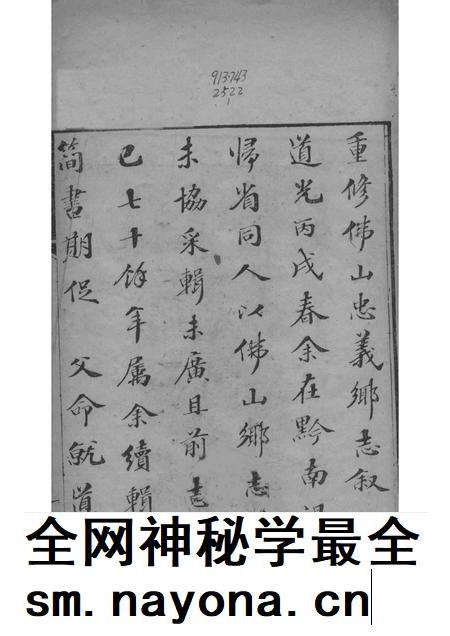 913.743
2522
1
重修佛山忠義鄉志叙
道光丙戌春余在黔南
帰省同人以佛山鄉志
未協采輯未廣且前志
已七十餘年属余續輯
簡書期促 父命就道
全网神秘学最全
sm.nayona.cn